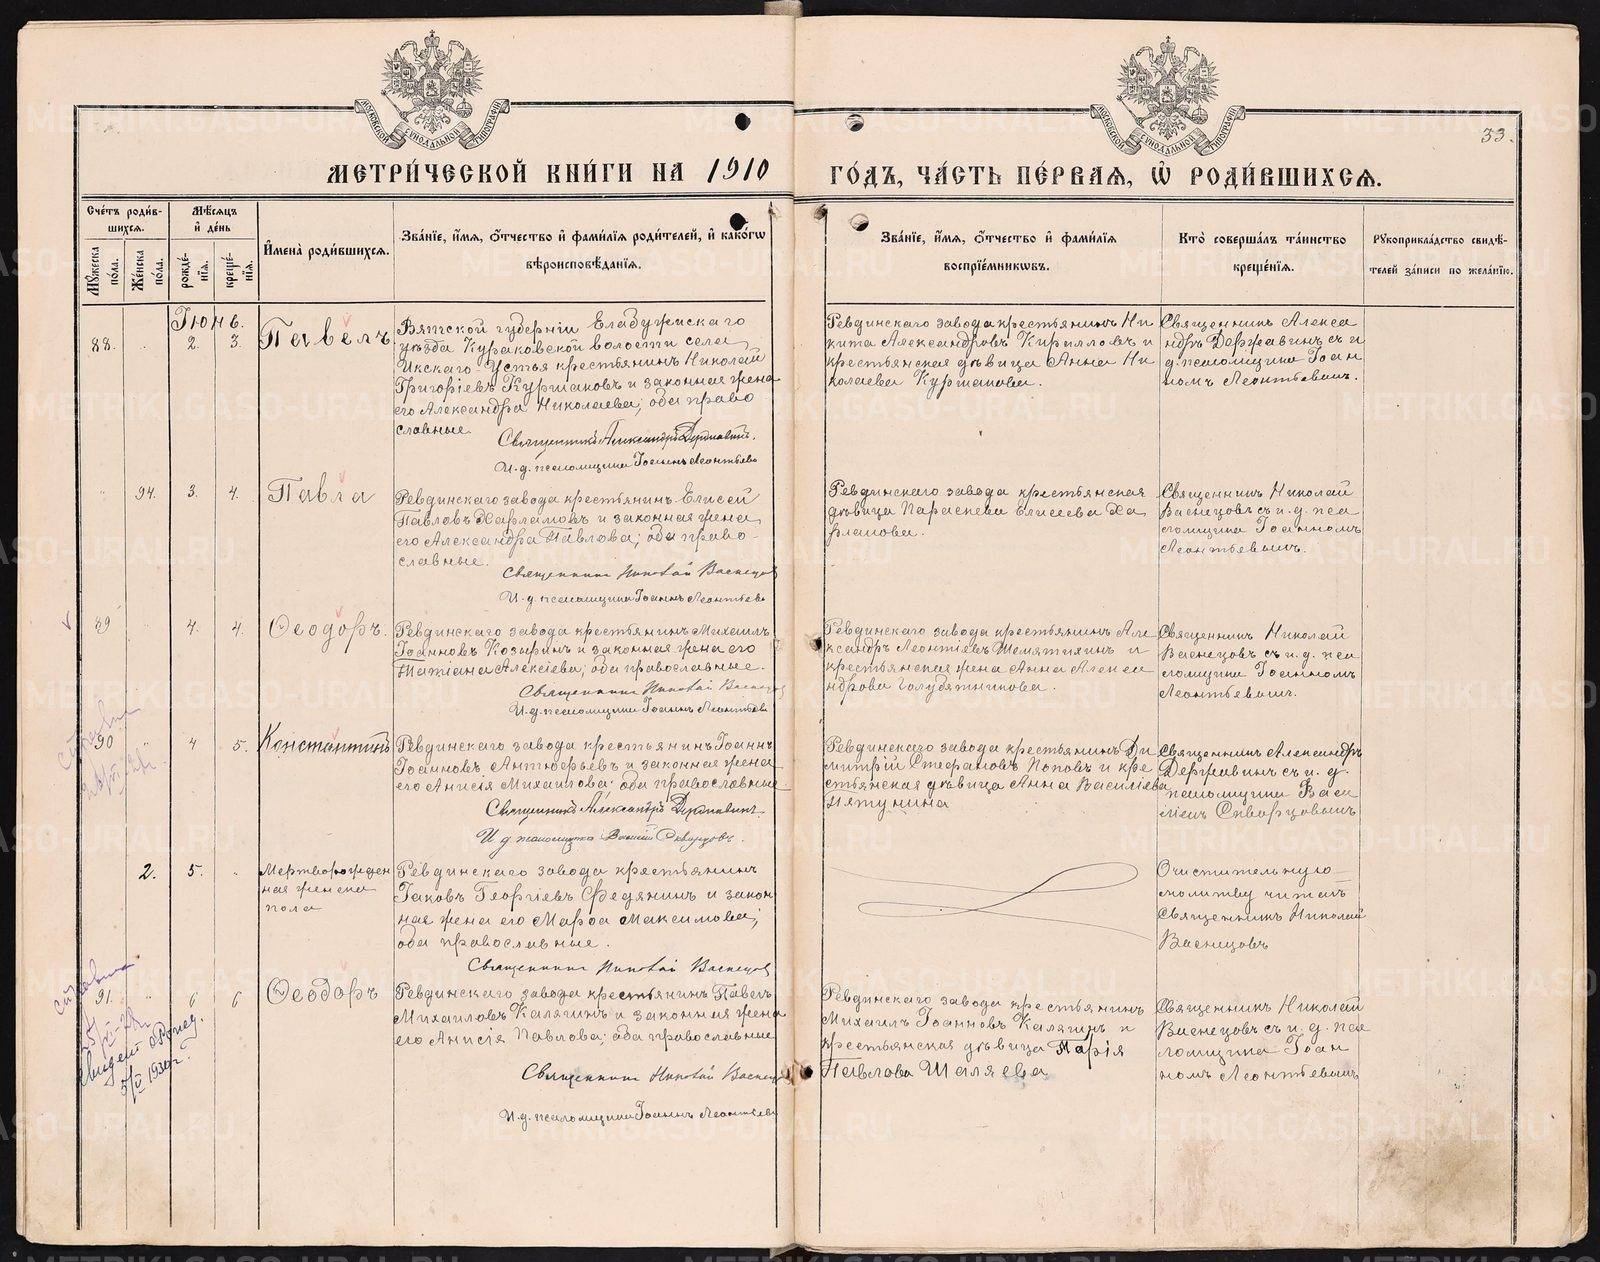 МОСКОВСКОЙ СУНОДАЛЬНОЙ ТИПОГРАФІИ
МОСКОВСКОЙ СУНОДАЛЬНОЙ ТИПОГРАФІИ
33.
МЕТРИ́ЧЕСКОЙ КНИ́ГИ НА 1910
ГО́ДЪ, ЧА́СТЬ ПЕ́РВАЯ, Ѽ РОДИ́ВШИХСѦ.
Сче́тъ роди́в-
шихсѧ.
Мѣ́сѧцъ
и҆ де́нь
Мꙋ́жеска по́ла.
Же́нска по́ла.
рожде́-нїѧ.
креще́-нїѧ.
И҆мена̀ роди́вшихсѧ.
Зва́нїе, и҆́мѧ, ѻ҆́тчество и҆ фами́лїѧ роди́телей, и҆ како́гѡ
вѣроисповѣ́данїѧ.
Зва́нїе, и҆́мѧ, ѻ҆́тчество и҆ фами́лїѧ
воспрїе́мникѡвъ.
Кто̀ соверша́лъ та́инство
креще́нїѧ.
Рꙋкоприкла́дство свидѣ́-
телей за́писи по жела́нїю.
Іюнь.
88. " 2. 3. Павелъ
Вятской губерніи Елабужскаго
уѣзда Кураковской волости села
Икскаго-Устья крестьянинъ Николай
Григоріевъ Куршаковъ и законная жена
его Александра Николаева; оба право
славные
Священникъ Александръ Державинъ.
И.д. псаломщика Іоаннъ Леонтьевъ
Ревдинскаго завода крестьянинъ Ни
кита Александровъ Кирилловъ и
крестьянская дѣвица Анна Ни
колаева Куршакова.
Священникъ Алекса
ндръ Державинъ съ и
д. псаломщика Іоан
номъ Леонтьевымъ.
" 94. 3. 4. Павла
Ревдинскаго завода крестьянинъ Елисей
Павловъ Харламовъ и законная жена
его Александра Павлова; оба право-
славные.
Священникъ Николай Васнецовъ
И.д. псаломщика Іоаннъ Леонтьевъ
Ревдинскаго завода крестьянская
дѣвица Параскева Елисеева Ха
рламова.
Священникъ Николай
Васнецовъ съ и.д. пса
ломщика Іоанномъ
Леонтьевымъ.
89 " 4. 4. Ѳеодоръ.
Ревдинскаго завода крестьянинъ Михаилъ
Іоанновъ Козыринъ и законная жена его
Татіана Алексіева; оба православные.
Священникъ Николай Васнецовъ
И.д. псаломщика Іоаннъ Леонтьевъ
Ревдинскаго завода крестьянинъ Але
ксандръ Леонтіевъ Шемятихинъ и
крестьянская жена Анна Алекса
ндрова Голубятникова.
Священникъ Николай
Васнецовъ съ и.д. пса
ломщика Іоанномъ
Леонтьевымъ.
90 " 4 5. Константинъ
Ревдинскаго завода крестьянинъ Іоаннъ
Іоанновъ Антюферьевъ и законная жена
его Анисія Михаилова; оба православные
Священникъ Александръ Державинъ
И д псаломщика Василій Скворцовъ.
Ревдинскаго завода крестьянинъ Ди
митрій Стефановъ Поповъ и кре
стьянская дѣвица Анна Василіева
Пятунина
Священникъ Александръ
Державинъ съ и. д.
псаломщика Васи
ліемъ Скворцовымъ
2. 5. " Мертворожден
ная женска
пола
Ревдинскаго завода крестьянинъ
Іаковъ Георгіевъ Федянинъ и закон
ная жена его Марѳа Максимова;
оба православные.
Священникъ Николай Васнецовъ
Очистительную
молитву читалъ
Священникъ Николай
Васнецовъ
91. " 6 6 Ѳеодоръ
Ревдинскаго завода крестьянинъ Павелъ
Михаиловъ Калягинъ и законная жена
его Анисія Павлова; оба православные
Священникъ Николай Васнецовъ
И.д. псаломщика Іоаннъ Леонтьевъ
Ревдинскаго завода крестьянинъ
Михаилъ Іоанновъ Калягинъ и
крестьянская дѣвица Марія
Павлова Шаляева
Священникъ Николай
Васнецовъ съ и.д. пса
ломщика Іоан
номъ Леонтьевымъ
METRIKI.GASO-URAL.RU